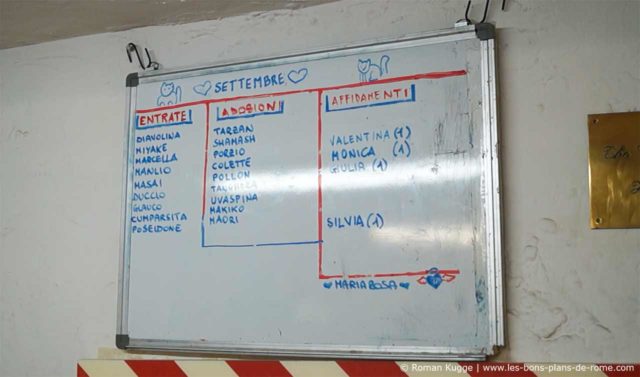 SETTEMBRE
ENTRATE
DIAVOLINA
MIYAKE
MARCELLA
MANLIO
MASAI
DUCCIO
GLAUCO
CUMPARSITA
POSEIDONE
ADOZIONI
TARZAN
SHAMASH
PORZIO
COLETTE
POLLON
UVASPINA
MAKIKO
MAORI
AFFIDAMENTI
VALENTINA (1)
MONICA (1)
GIULIA (1)
SILVIA (1)
MARIAROSA
© Roman Kugge | www.les-bons-plans-de-rome.com